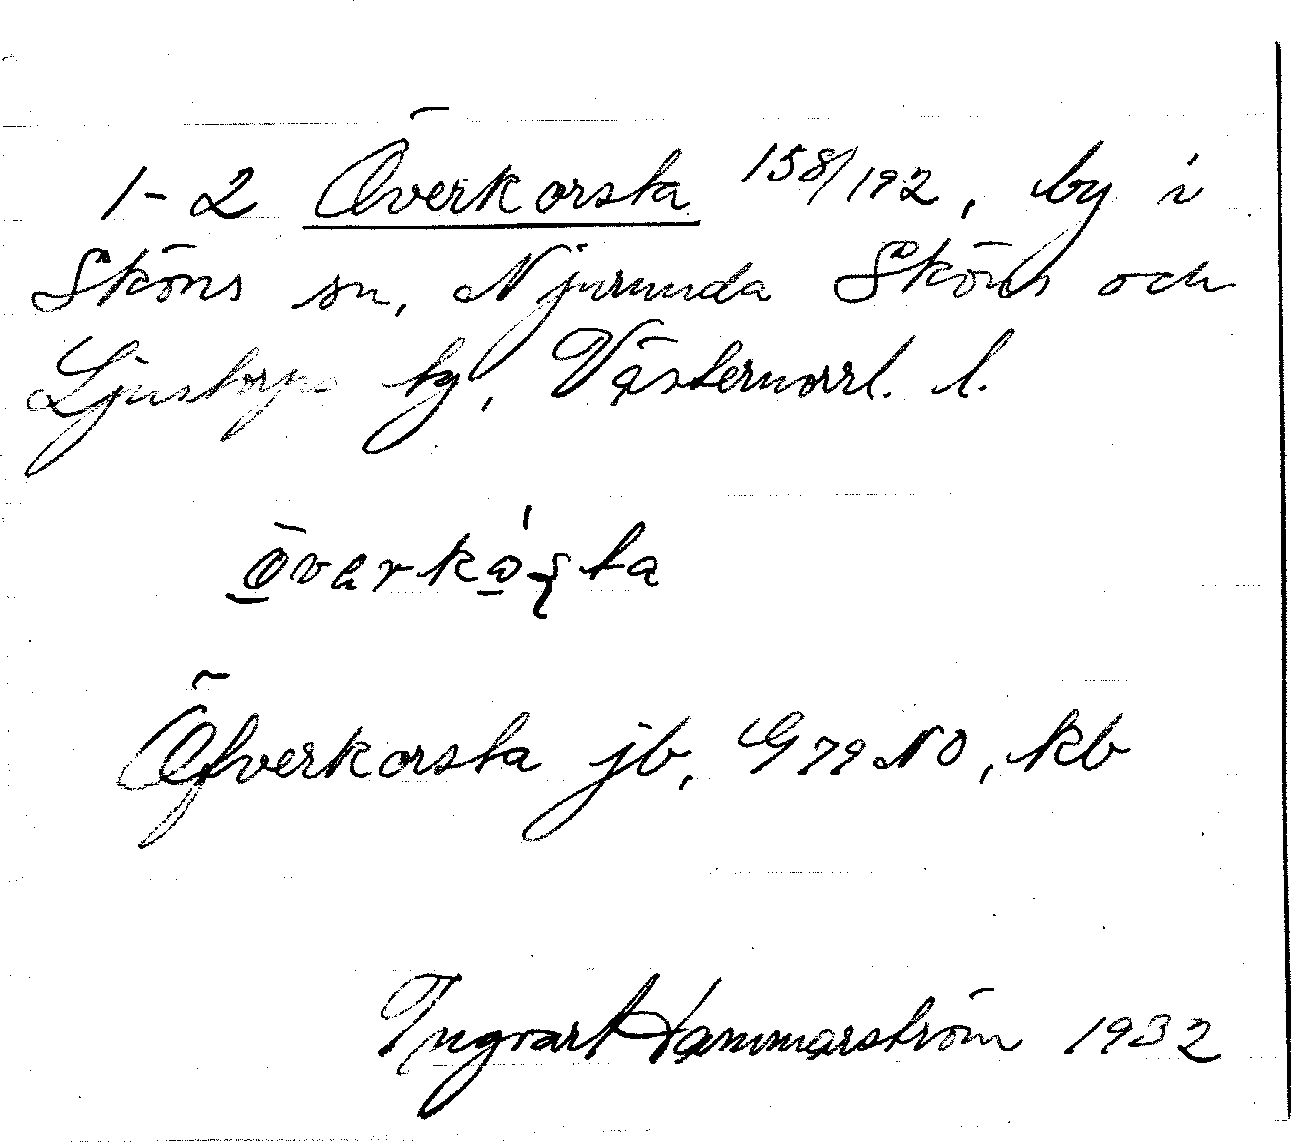 1-2 Överkorsta 158/192, by i
Sköns sn, Njurunda Sköns och
Ljustorps tg, Västernorrl. l.
Öfverkorsta jb, G79NO, kb
Ingvart Hammarström 1932